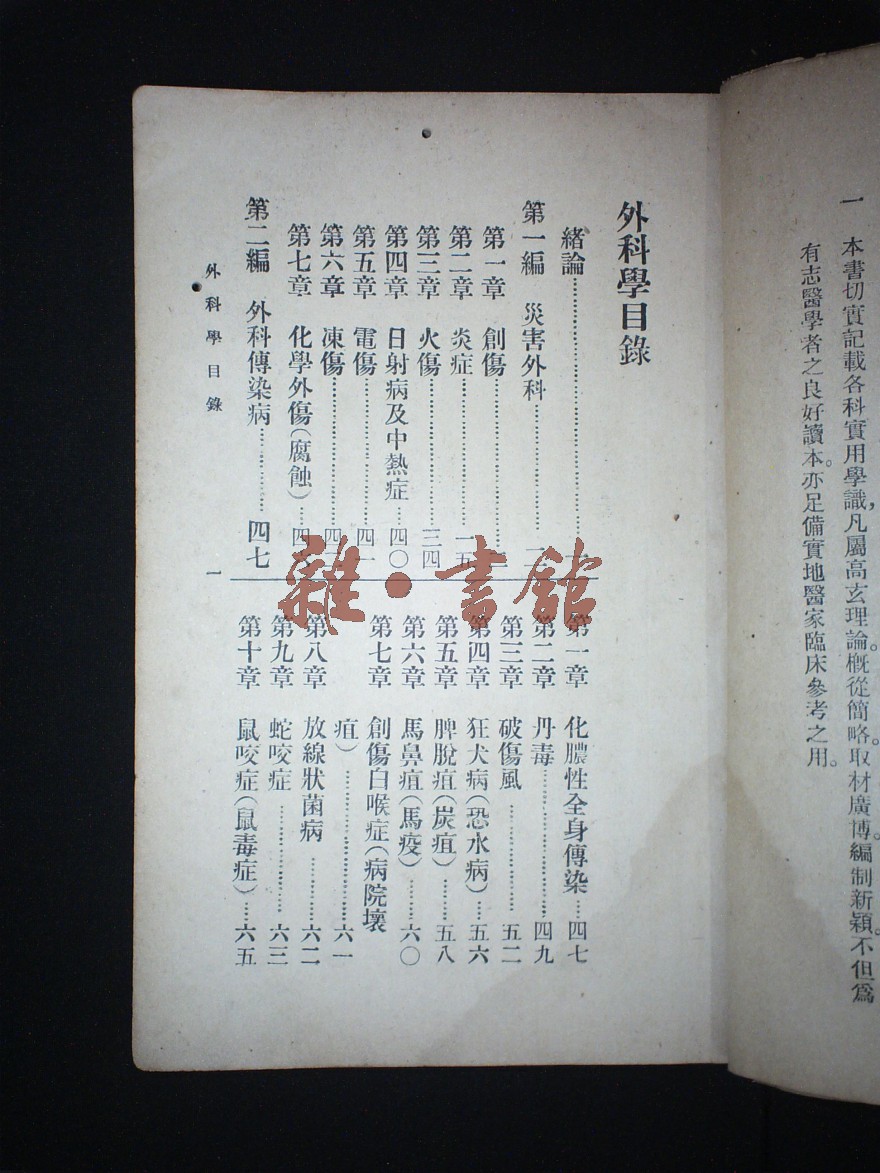 一 本書切實記載各科實用學識,凡屬高玄理論。概從簡略。取材廣博。編制新穎。不但爲
有志醫學者之良好讀本。亦足備實地醫家臨床參考之用。
外科學目錄
緒論
第一編 災害外科
第一章 創傷
第二章 炎症 一五
第三章 火傷 三四
第四章 日射病及中熱症 四〇
第五章 電傷
第六章 凍傷
第七章 化學外傷(腐蝕)
第二編 外科傳染病 四七
第一章 化膿性全身傳染 四七
第二章 丹毒 四九
第三章 破傷風 五二
第四章 狂犬病(恐水病) 五六
第五章 脾脫疽(炭疽) 五八
第六章 馬鼻疽(馬疫) 六〇
第七章 創傷白喉症(病院壞
疽) 六一
第八章 放線狀菌病 六二
第九章 蛇咬症 六三
第十章 鼠咬症(鼠毒症) 六五
外科學目錄
一
雜·書館